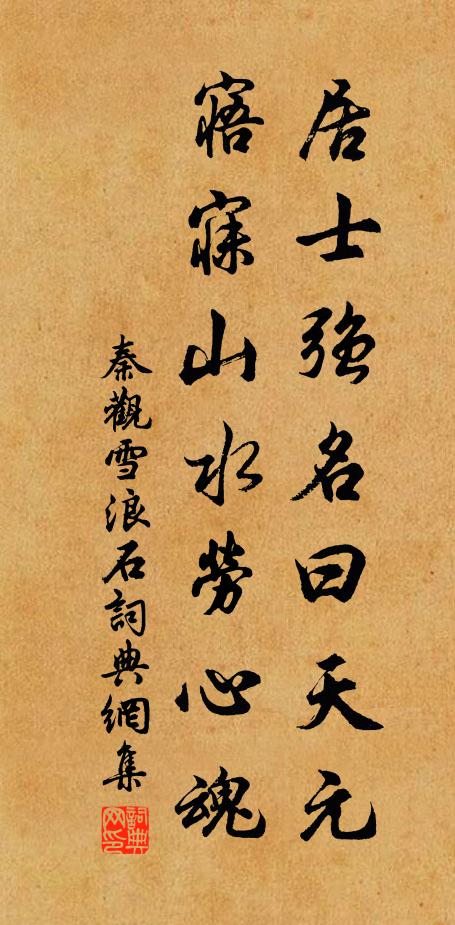 居士強名曰天元
寤寐山水勞心魂
秦觀雪浪石詞典網集
詞典
网印